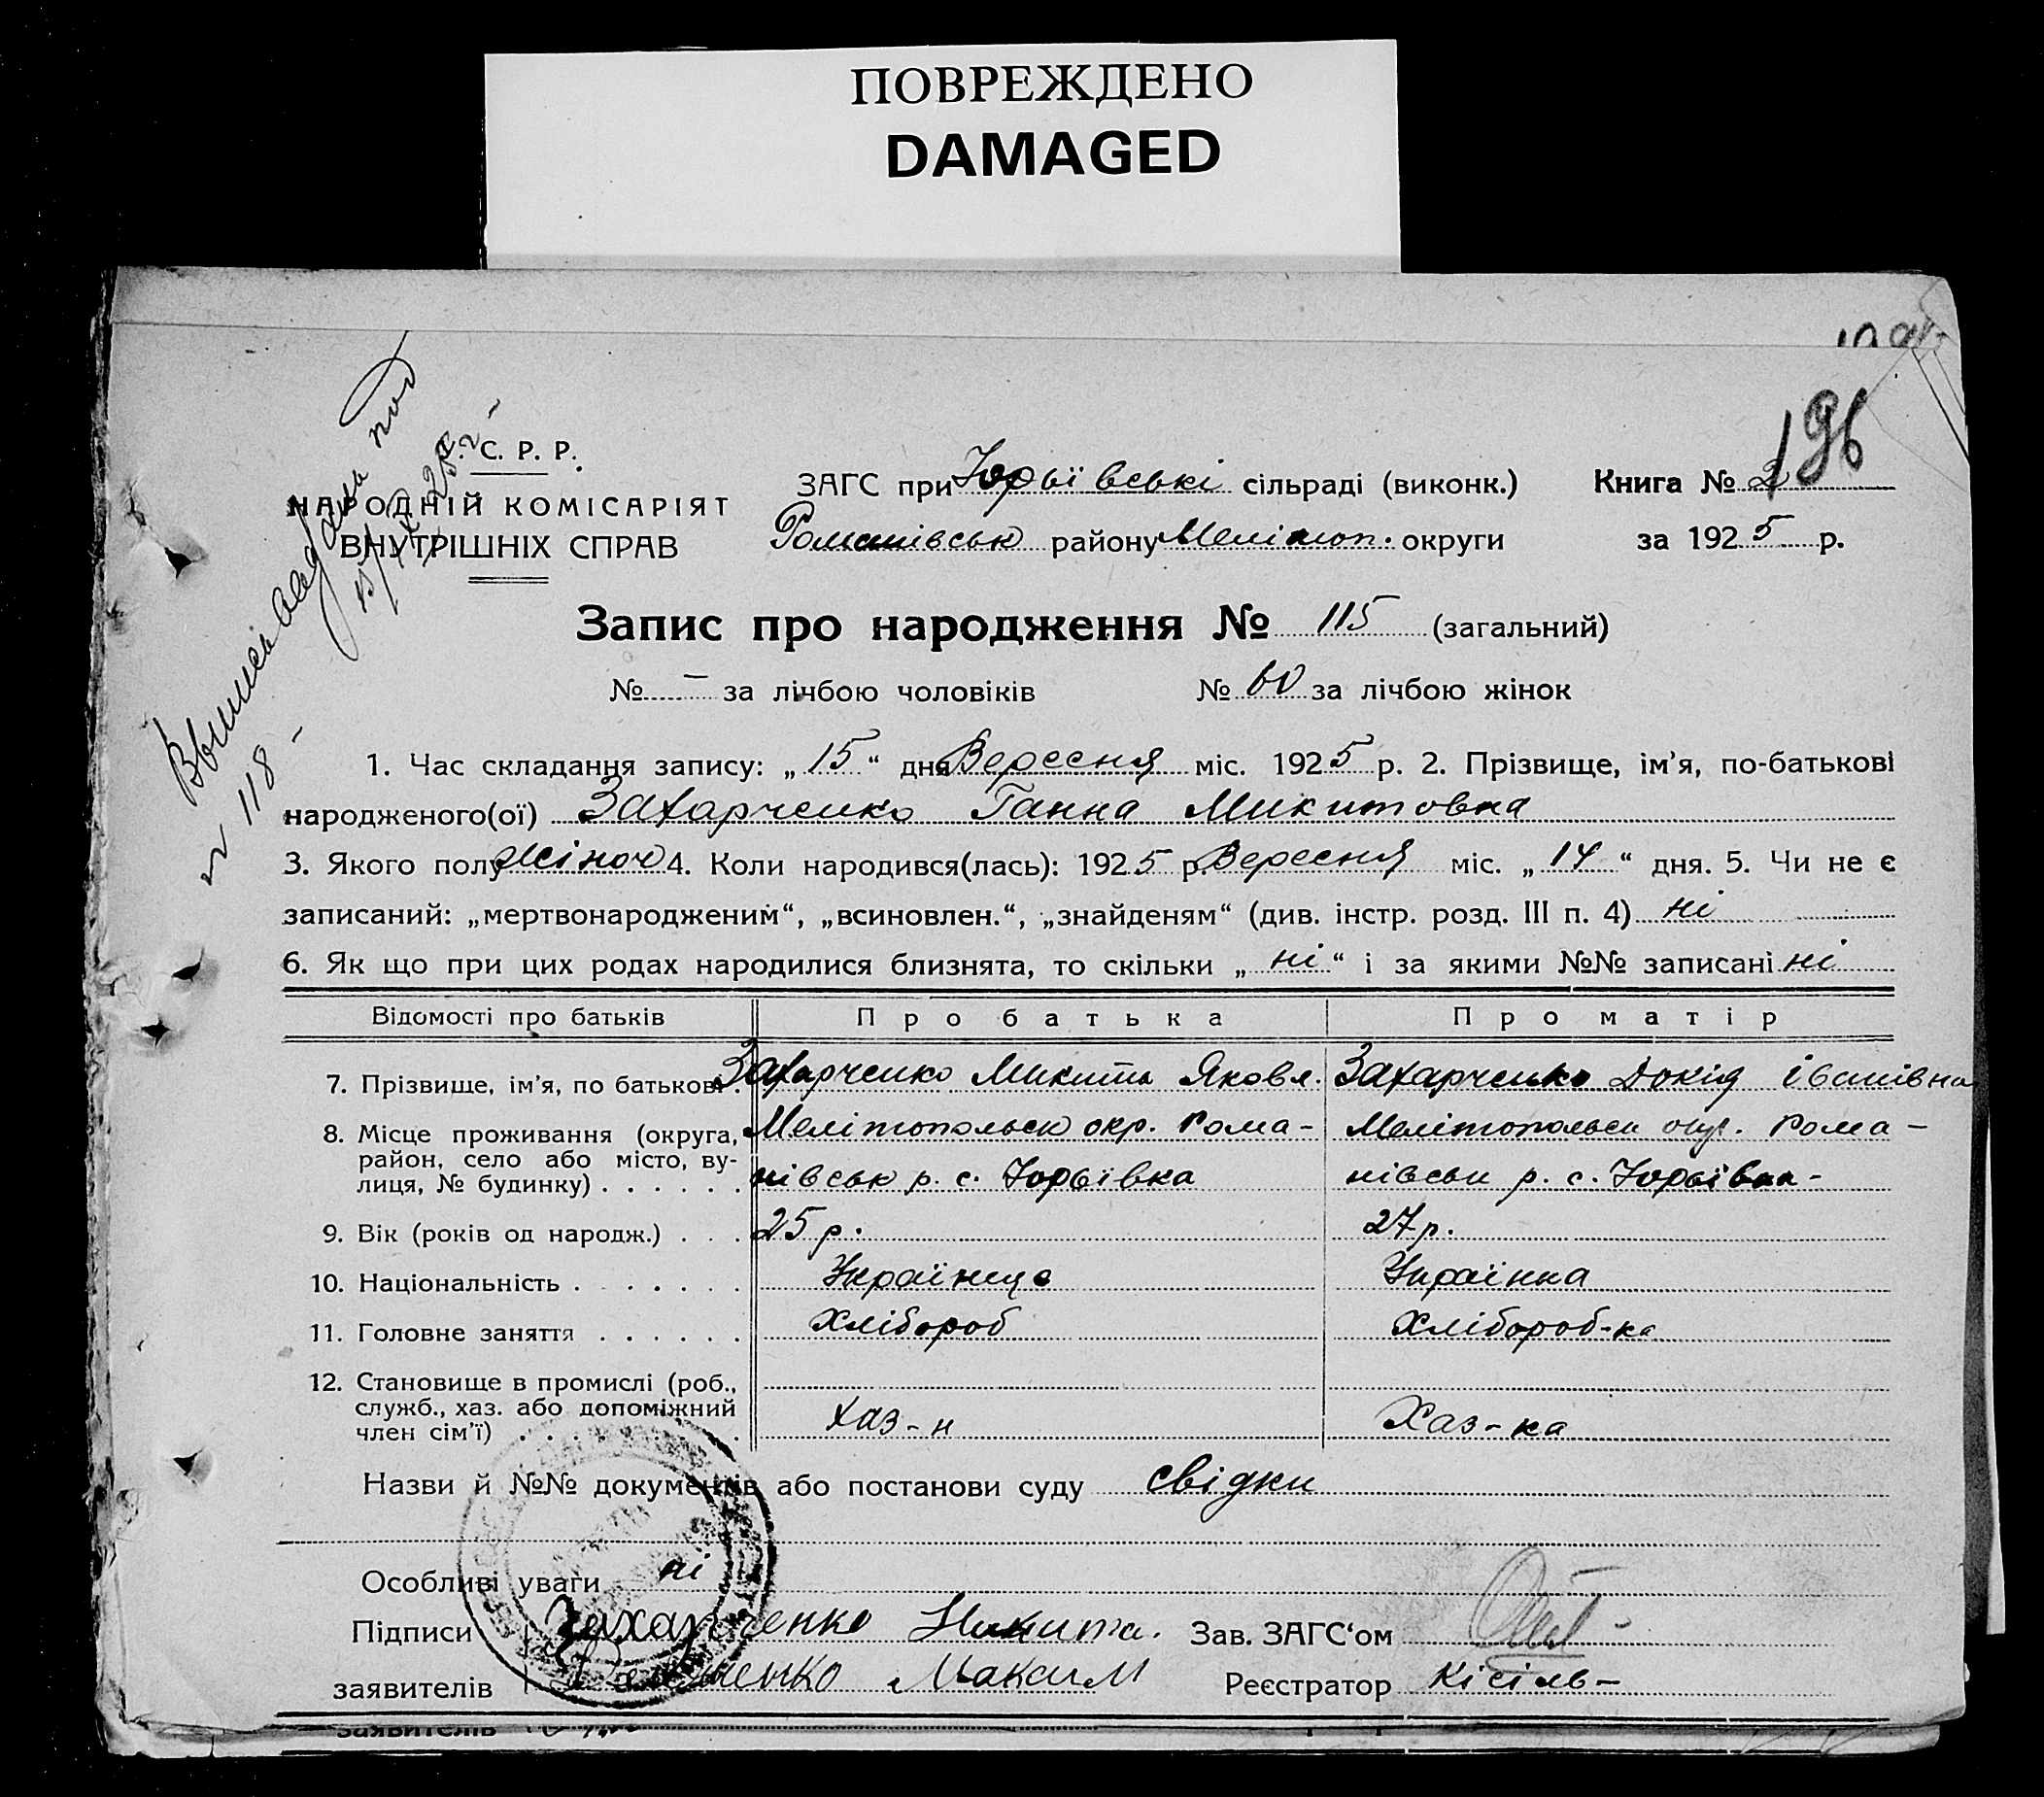 ПОВРЕЖДЕНО
DAMAGED
196
С. Р. Р.
НАРОДНІЙ КОМІСАРІЯТ
ВНУТРІШНІХ СПРАВ
ЗАГС при Юрьївські сільраді (виконк.)
Книга № 2
Романівськ району Меліоп. округи
за 1925 р.
Запис про народження № 115 (загальний)
№ - за лічбою чоловіків № 60 за лічбою жінок
1. Час складання запису: „15“ дня Вересня міс. 1925 р. 2. Прізвище, ім’я, по-батькові
народженого(ої) Захарченко Ганна Микитовна
3. Якого полу жіноч 4. Коли народився(лась): 1925 р. Вересня міс. „14“ дня. 5. Чи не є
записаний: „мертвонародженим“, „всиновлен.“, „знайденям“ (див. інстр. розд. III п. 4) ні
6. Як що при цих родах народилися близнята, то скільки „ні“ і за якими №№ записані ні
Відомості про батьків Про батька Про матір
7. Прізвище, ім’я, по батькові. Захарченко Микита Яковл. Захарченко Докія Іванівна
8. Місце проживання (округа, район, село або місто, вулиця, № будинку)
Мелітопольськ окр. Рома-
нівськ р. с. Юрьївка
Мелітопольськ окр. Рома-
нівськ р. с. Юрьївка-
9. Вік (років од народж.) . . . 25 р. 27 р.
10. Національність . . . . . . . Українце Українка
11. Головне заняття . . . . . . Хлібороб Хлібороб-ка
12. Становище в промислі (роб.,
служб., хаз. або допоміжний
член сім’ї) Хаз-н Хаз-ка
Назви й №№ документів або постанови суду свідки
Особливі уваги ні
Підписи Захарченко Никита. Зав. ЗАГС‘ом
заявителів Максим Реєстратор Кісіль-
№ 118 -
заявителів